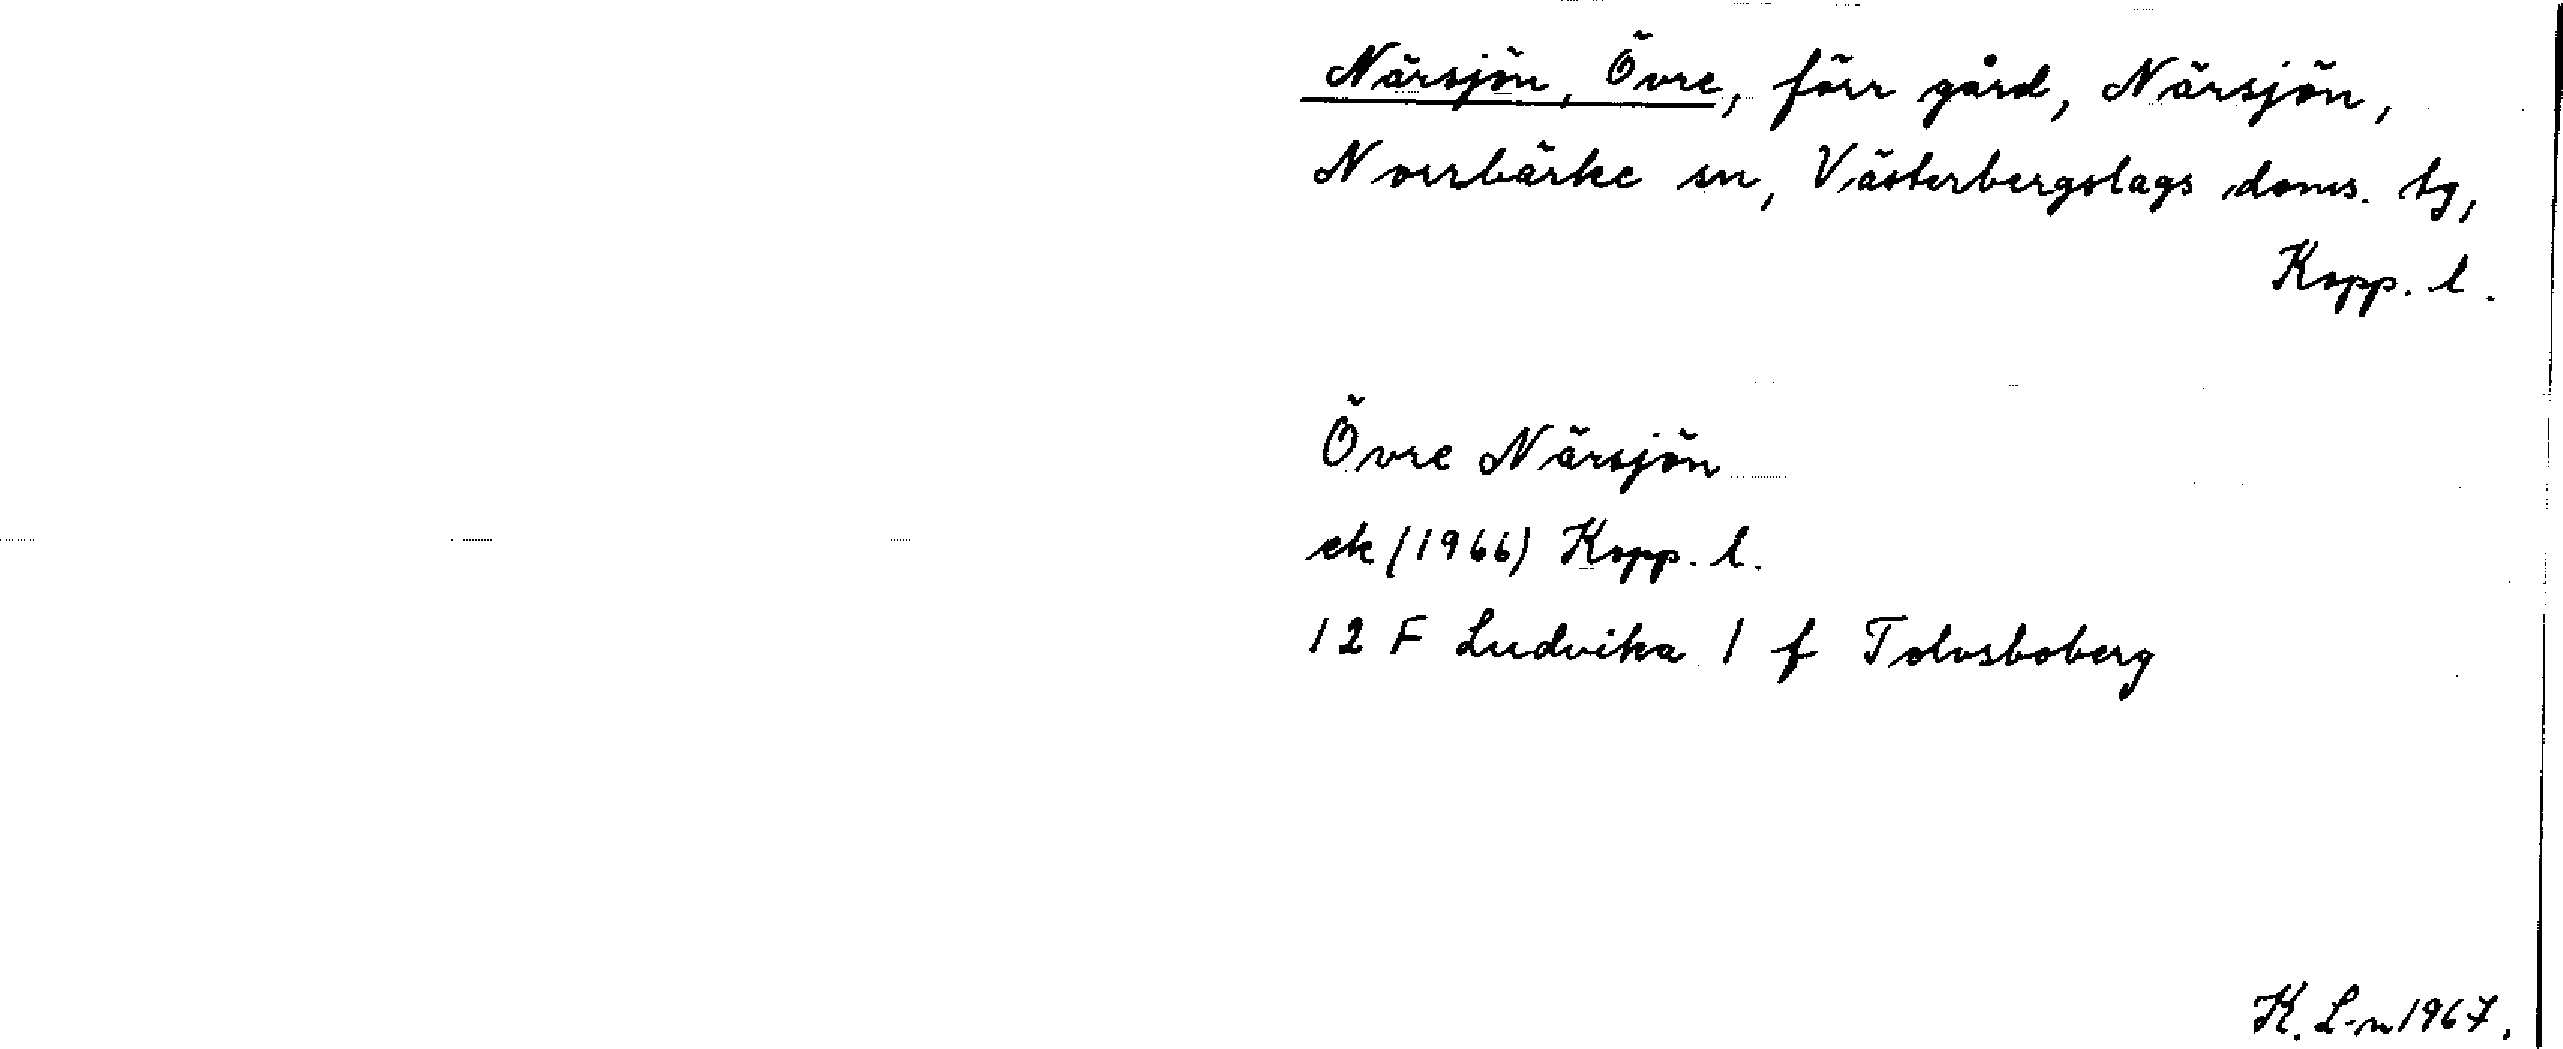 Närsjön, Övre, förr gård, Närsjön,
Norrbärke sn, Västerbergslags doms. tg,
Kopp. l.
Övre Närsjön
ek (1966) Kopp. l.
12 F Ludvika 1 f Tolvsboberg
K. L-n 1967.